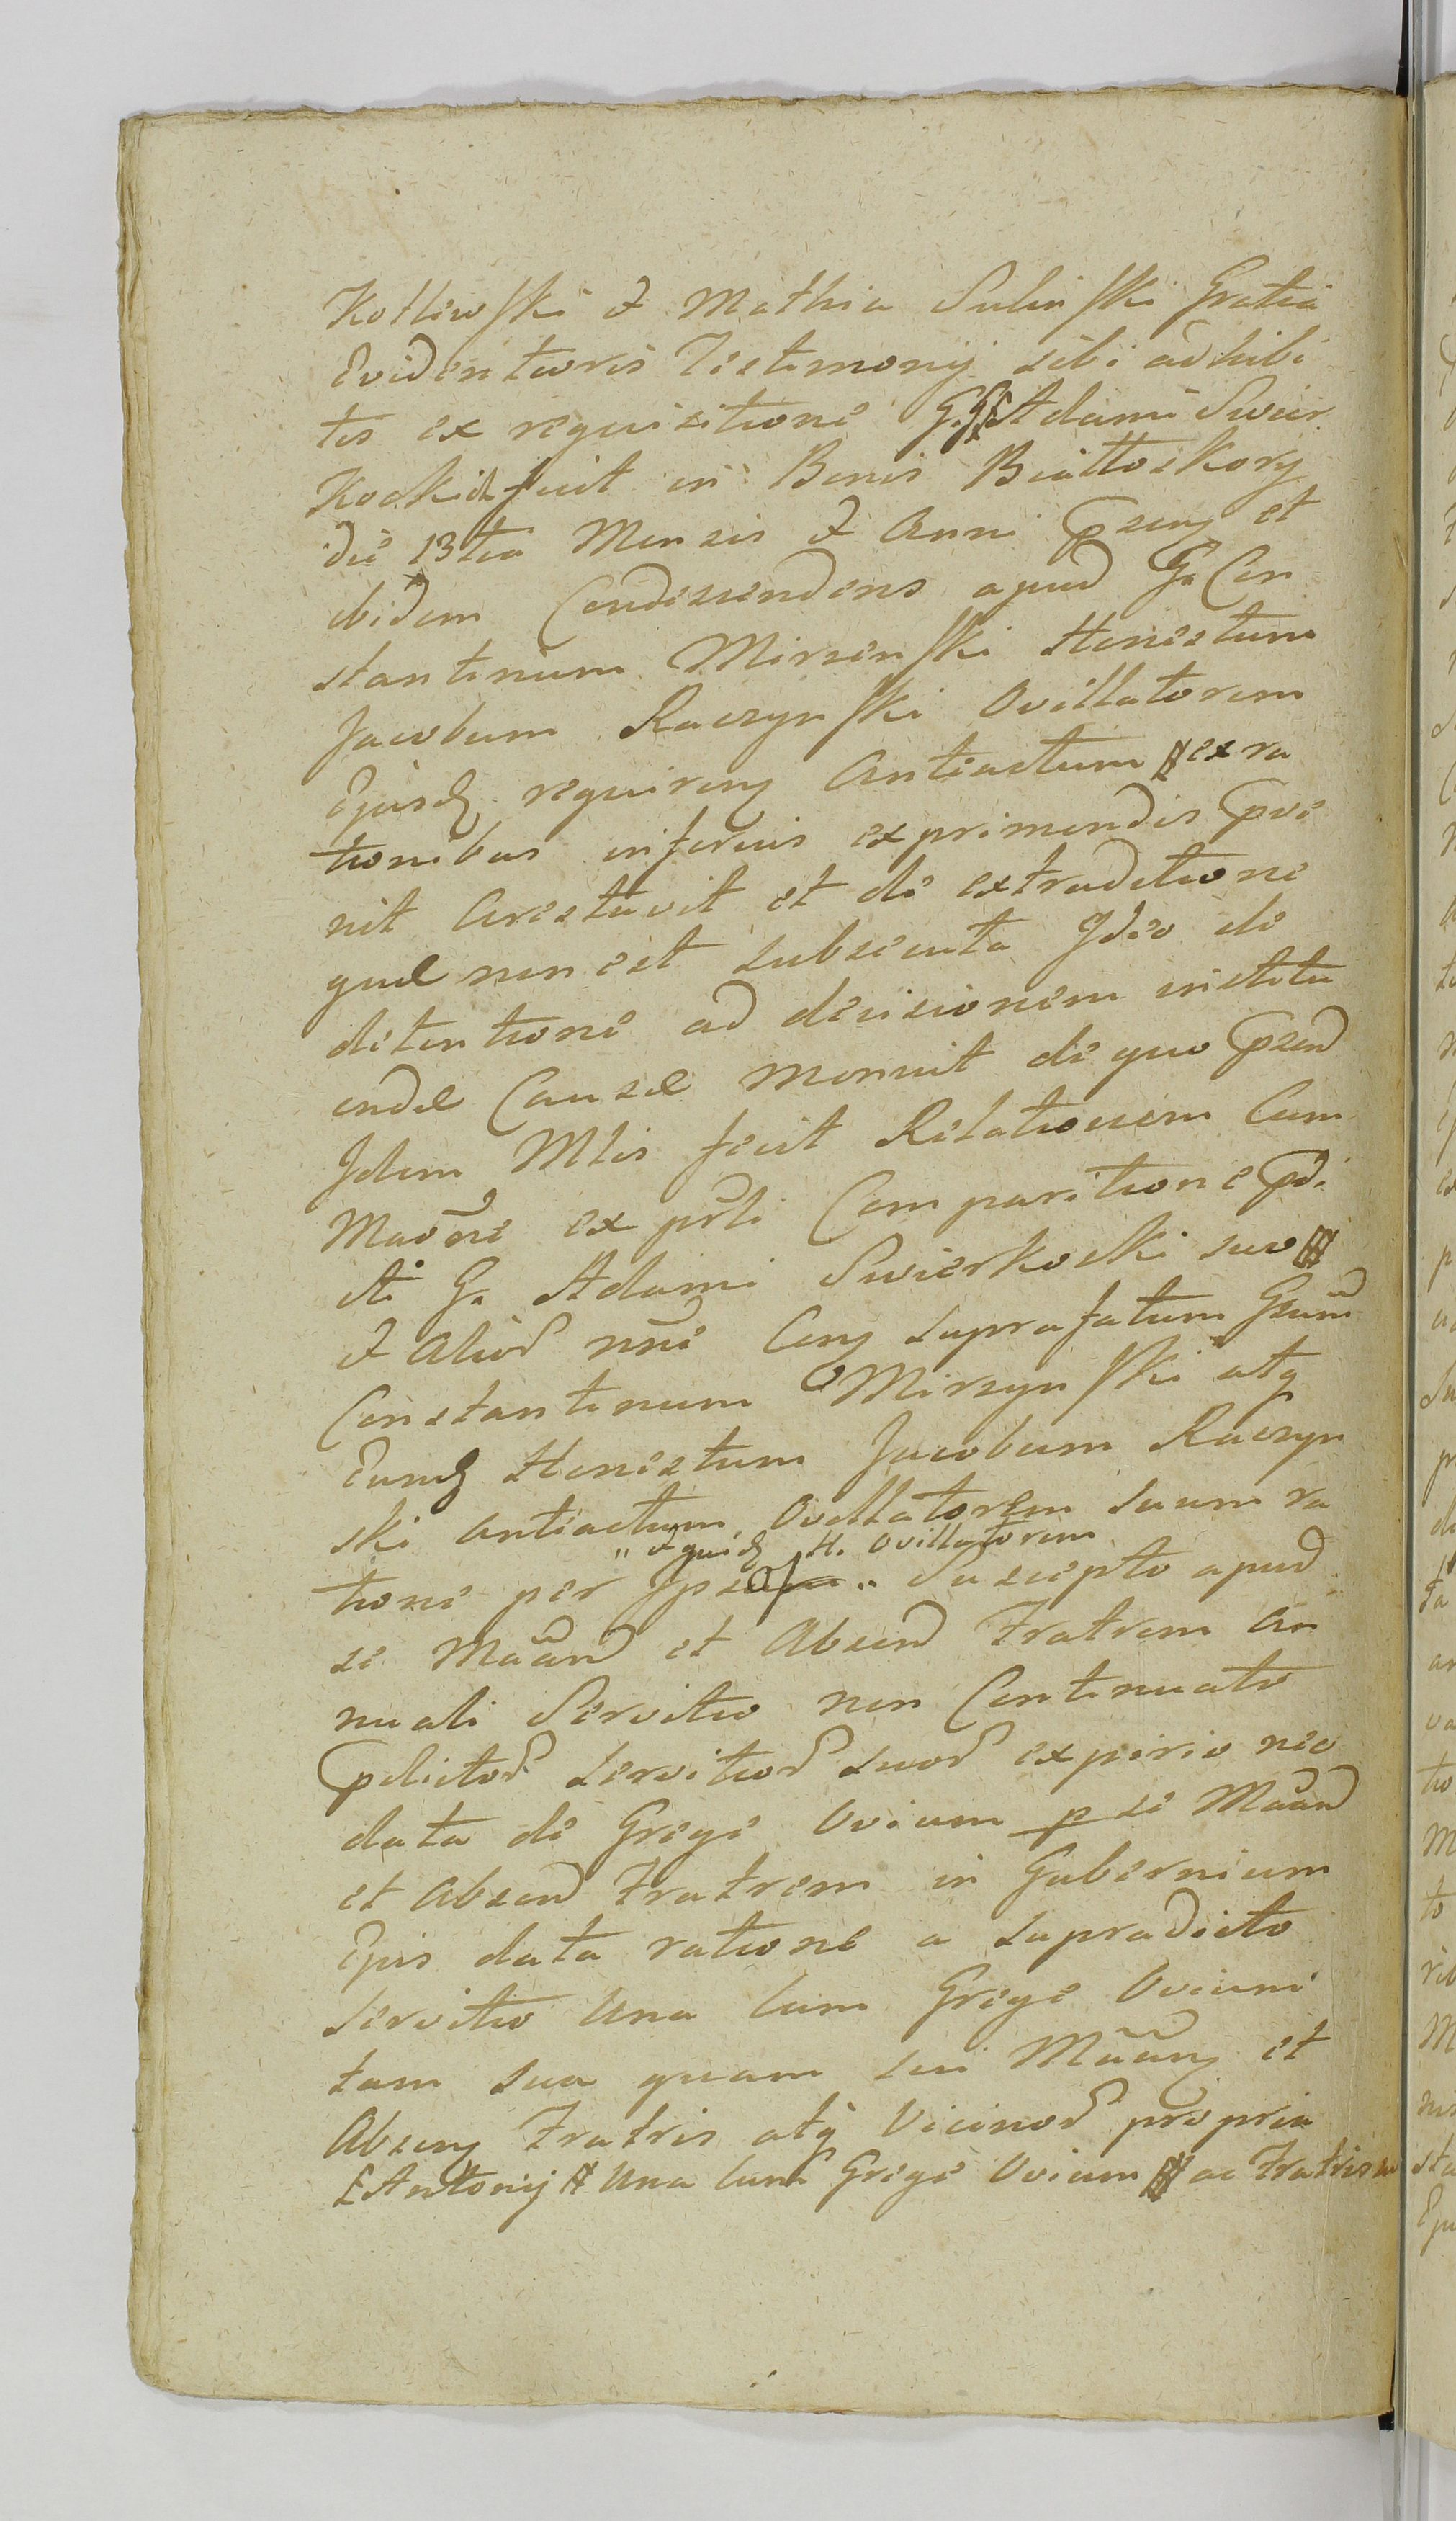 Kotlewski & Mathia Sulinski Gratia
Evidentioris Testimonij sibi adhibi
tis ex requisitione G. Adami Swier
Kockid fuit in Bonis Białłoskory
die 13tia Mensis & Anni Pseny et
ibidem Condescendens apud G. Con
stantinum Mirzenski Honestum
Jacobum Raczynski Ovillatorem
Ejusd requireny Antiactum ex ra
tionibus inferius exprimendis Pve
nit Arestavit et de extraditione
quæ non est subsecuta Ideo de
detentione ad decisionem institu
endæ Causæ Monuit de quo Psend
Idem Mtis fecit Relationem Cum
Maone ex prti Comparitione Pdi
cti G. Adami Swierkoski suo
& Aliod nne Cony suprafatum Gsum
Constantinum Mirzynski atq
Eund Honestum Jacobum Raczyn
ski Antiactum Ovillatorem suum ra
" & quid H. Ovillatorem
tione per Ipsum " Suscepto apud
se Maand et Absend Fratrem An
nuali Servitio non Continuato
Pdictod servitiod suod expirio nec
data de Grege Ovium p se Maand
et Absend Fratrem in Gubernium
Ejus data ratione a supradicto
servitio Una Cum Grege Ovium
tam sua quam sui Maany et
Abseny Fratris atq Vicinod propria
Antonij Una Cum Grege Ovium ac Fratris